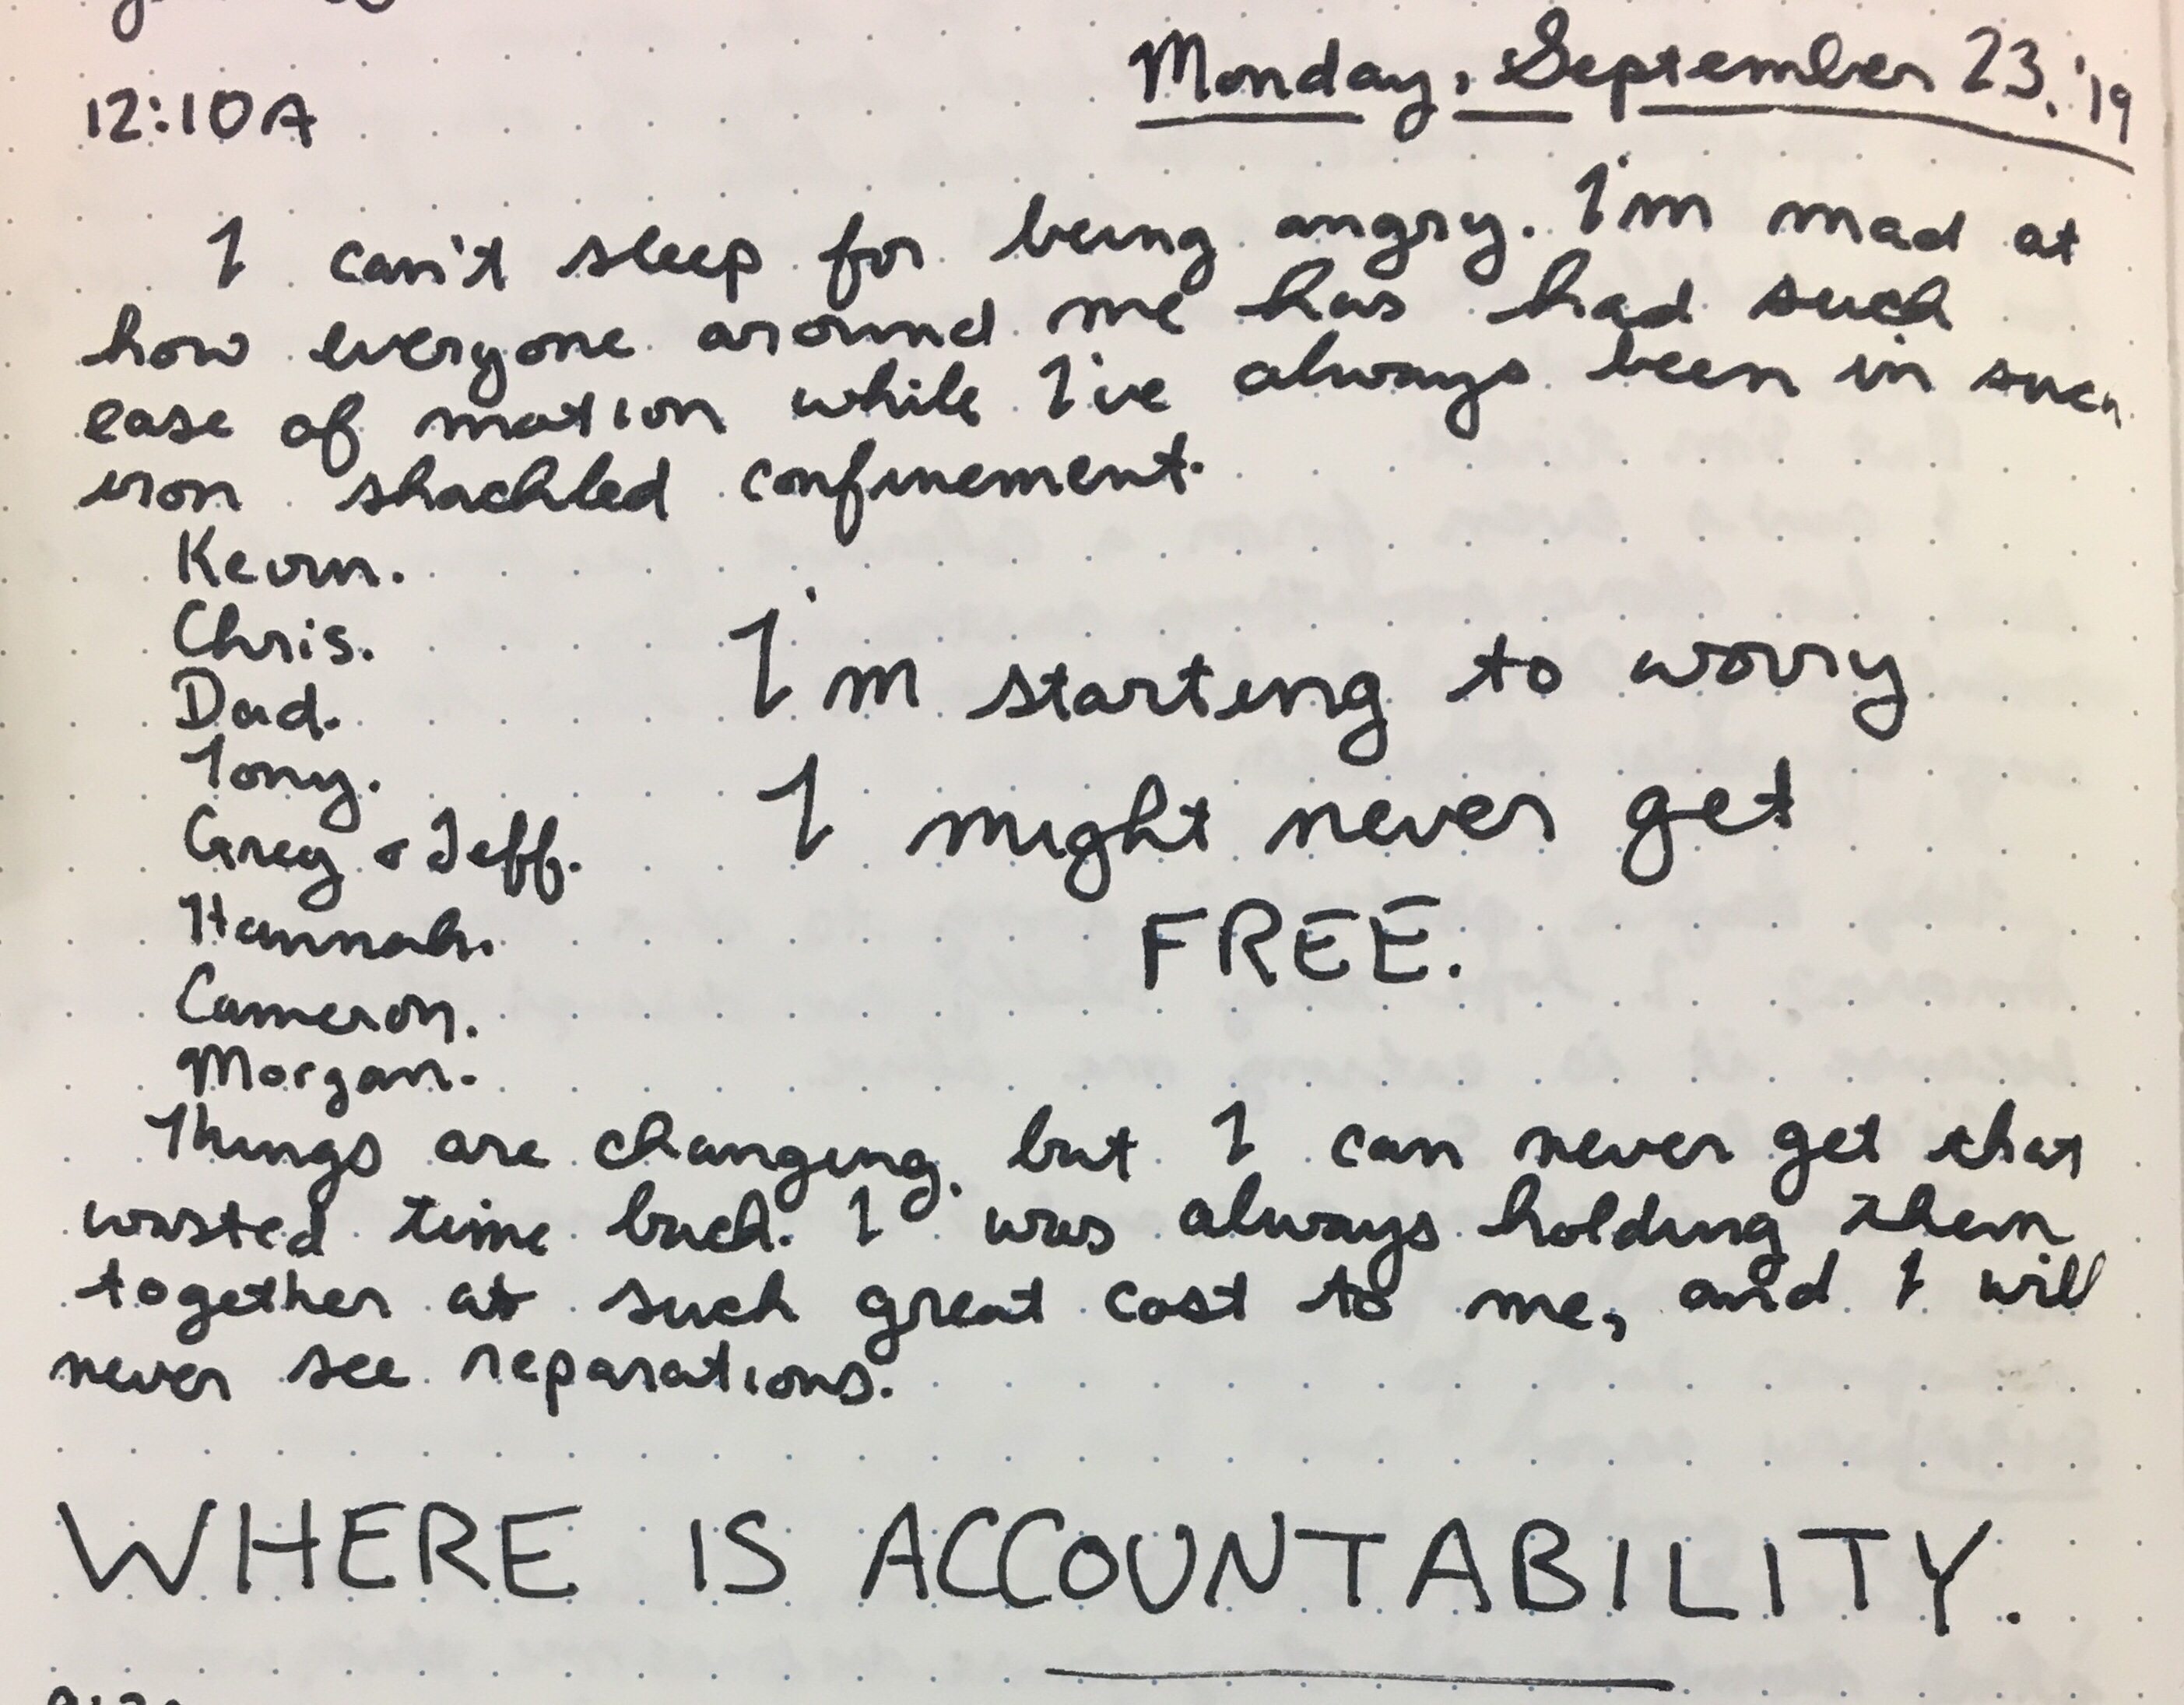 Monday, September 23, '19
12:10A
I can't sleep for being angry. I'm mad at
how everyone around me has had such
ease of motion while I've always been in such
iron shackled confinement.
Kevin.
Chris.
Dad.
Tony.
Greg & Jeff.
Hannah.
Cameron.
Morgan.
I'm starting to worry
I might never get
FREE.
Things are changing, but I can never get that
wasted time back. I was always holding them
together at such great cost to me, and I will
never see reparations.
WHERE IS ACCOUNTABILITY.